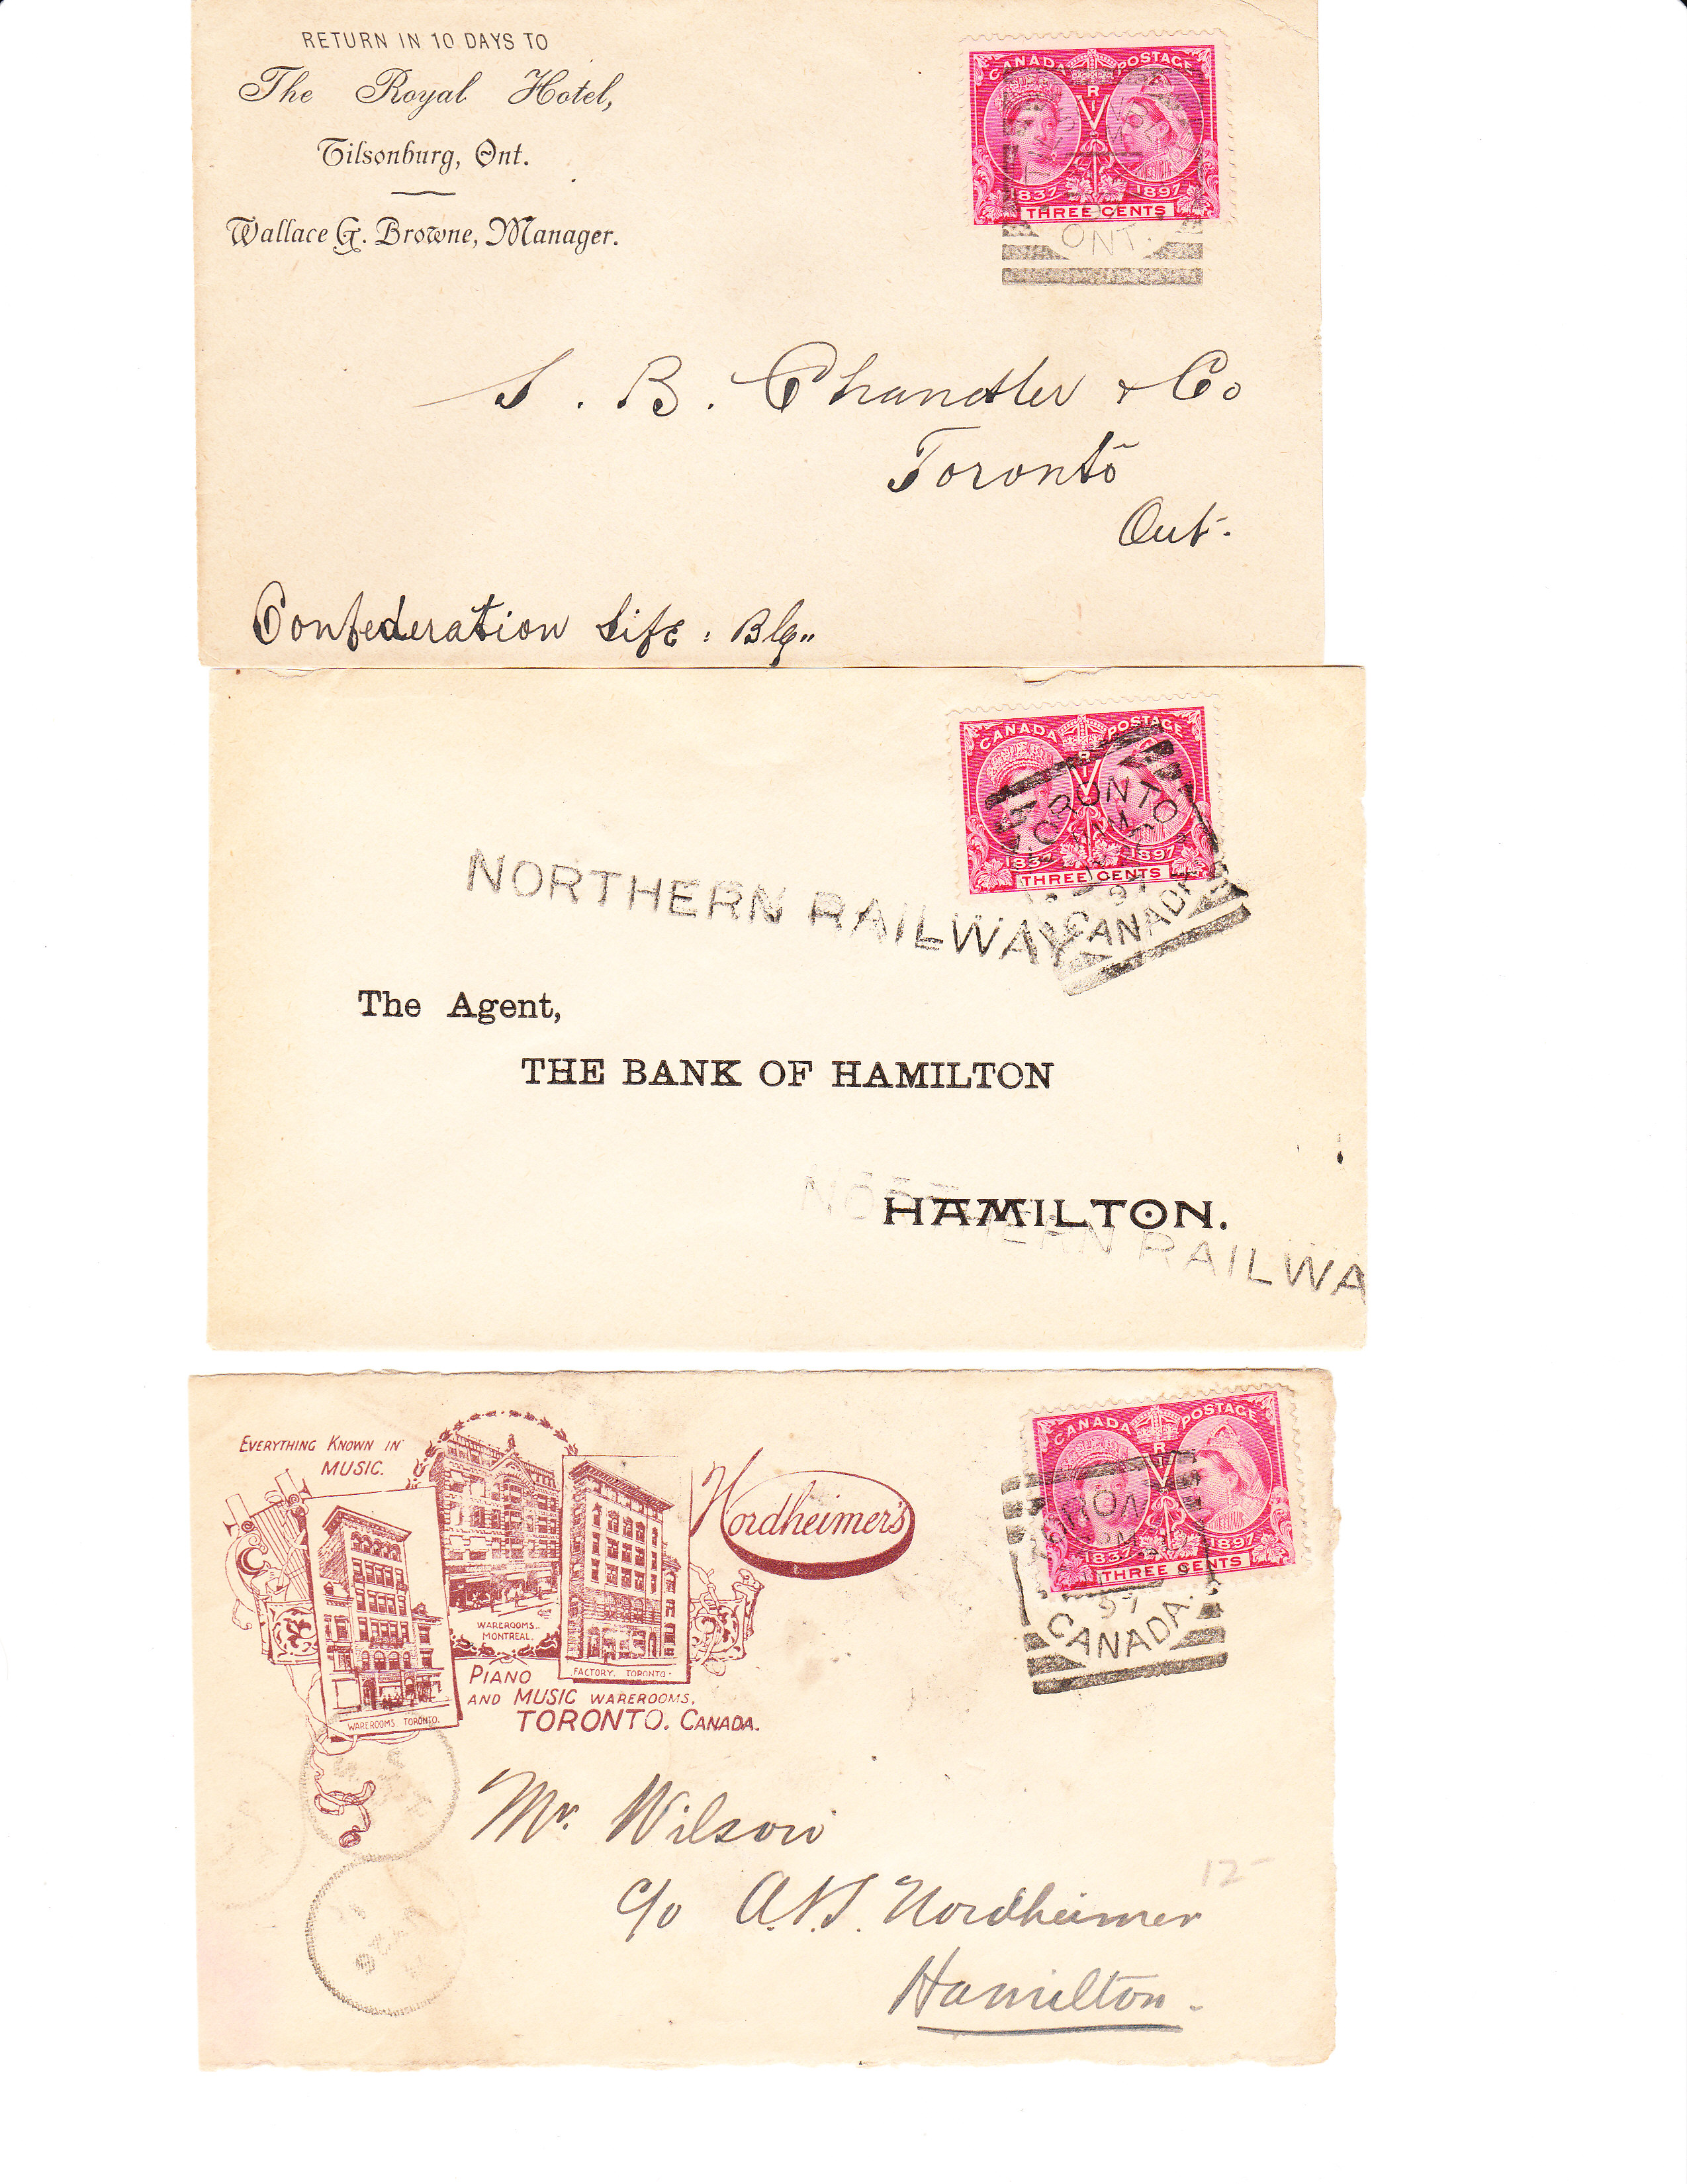 RETURN IN 10 DAYS TO
The Royal Hotel,
Tilsonburg, Ont.
Wallace G. Browne, Manager.
CANADA POSTAGE
V R I
1837 1897
THREE CENTS
ONT.
S. B. Chandler & Co
Toronto
Ont.
Confederation Life: Blg"
CANADA POSTAGE
V R I
1837 1897
THREE CENTS
TORONTO
CANADA
NORTHERN RAILWAY
The Agent,
THE BANK OF HAMILTON
HAMILTON.
NORTHERN RAILWA
EVERYTHING KNOWN IN
MUSIC.
Nordheimer's
CANADA POSTAGE
V R I
1837 1897
THREE CENTS
CANADA.
WAREROOMS.
MONTREAL.
FACTORY. TORONTO.
WAREROOMS TORONTO.
PIANO
AND MUSIC WAREROOMS,
TORONTO. CANADA.
Mr. Wilson
c/o A. & S. Nordheimer
12-
Hamilton.